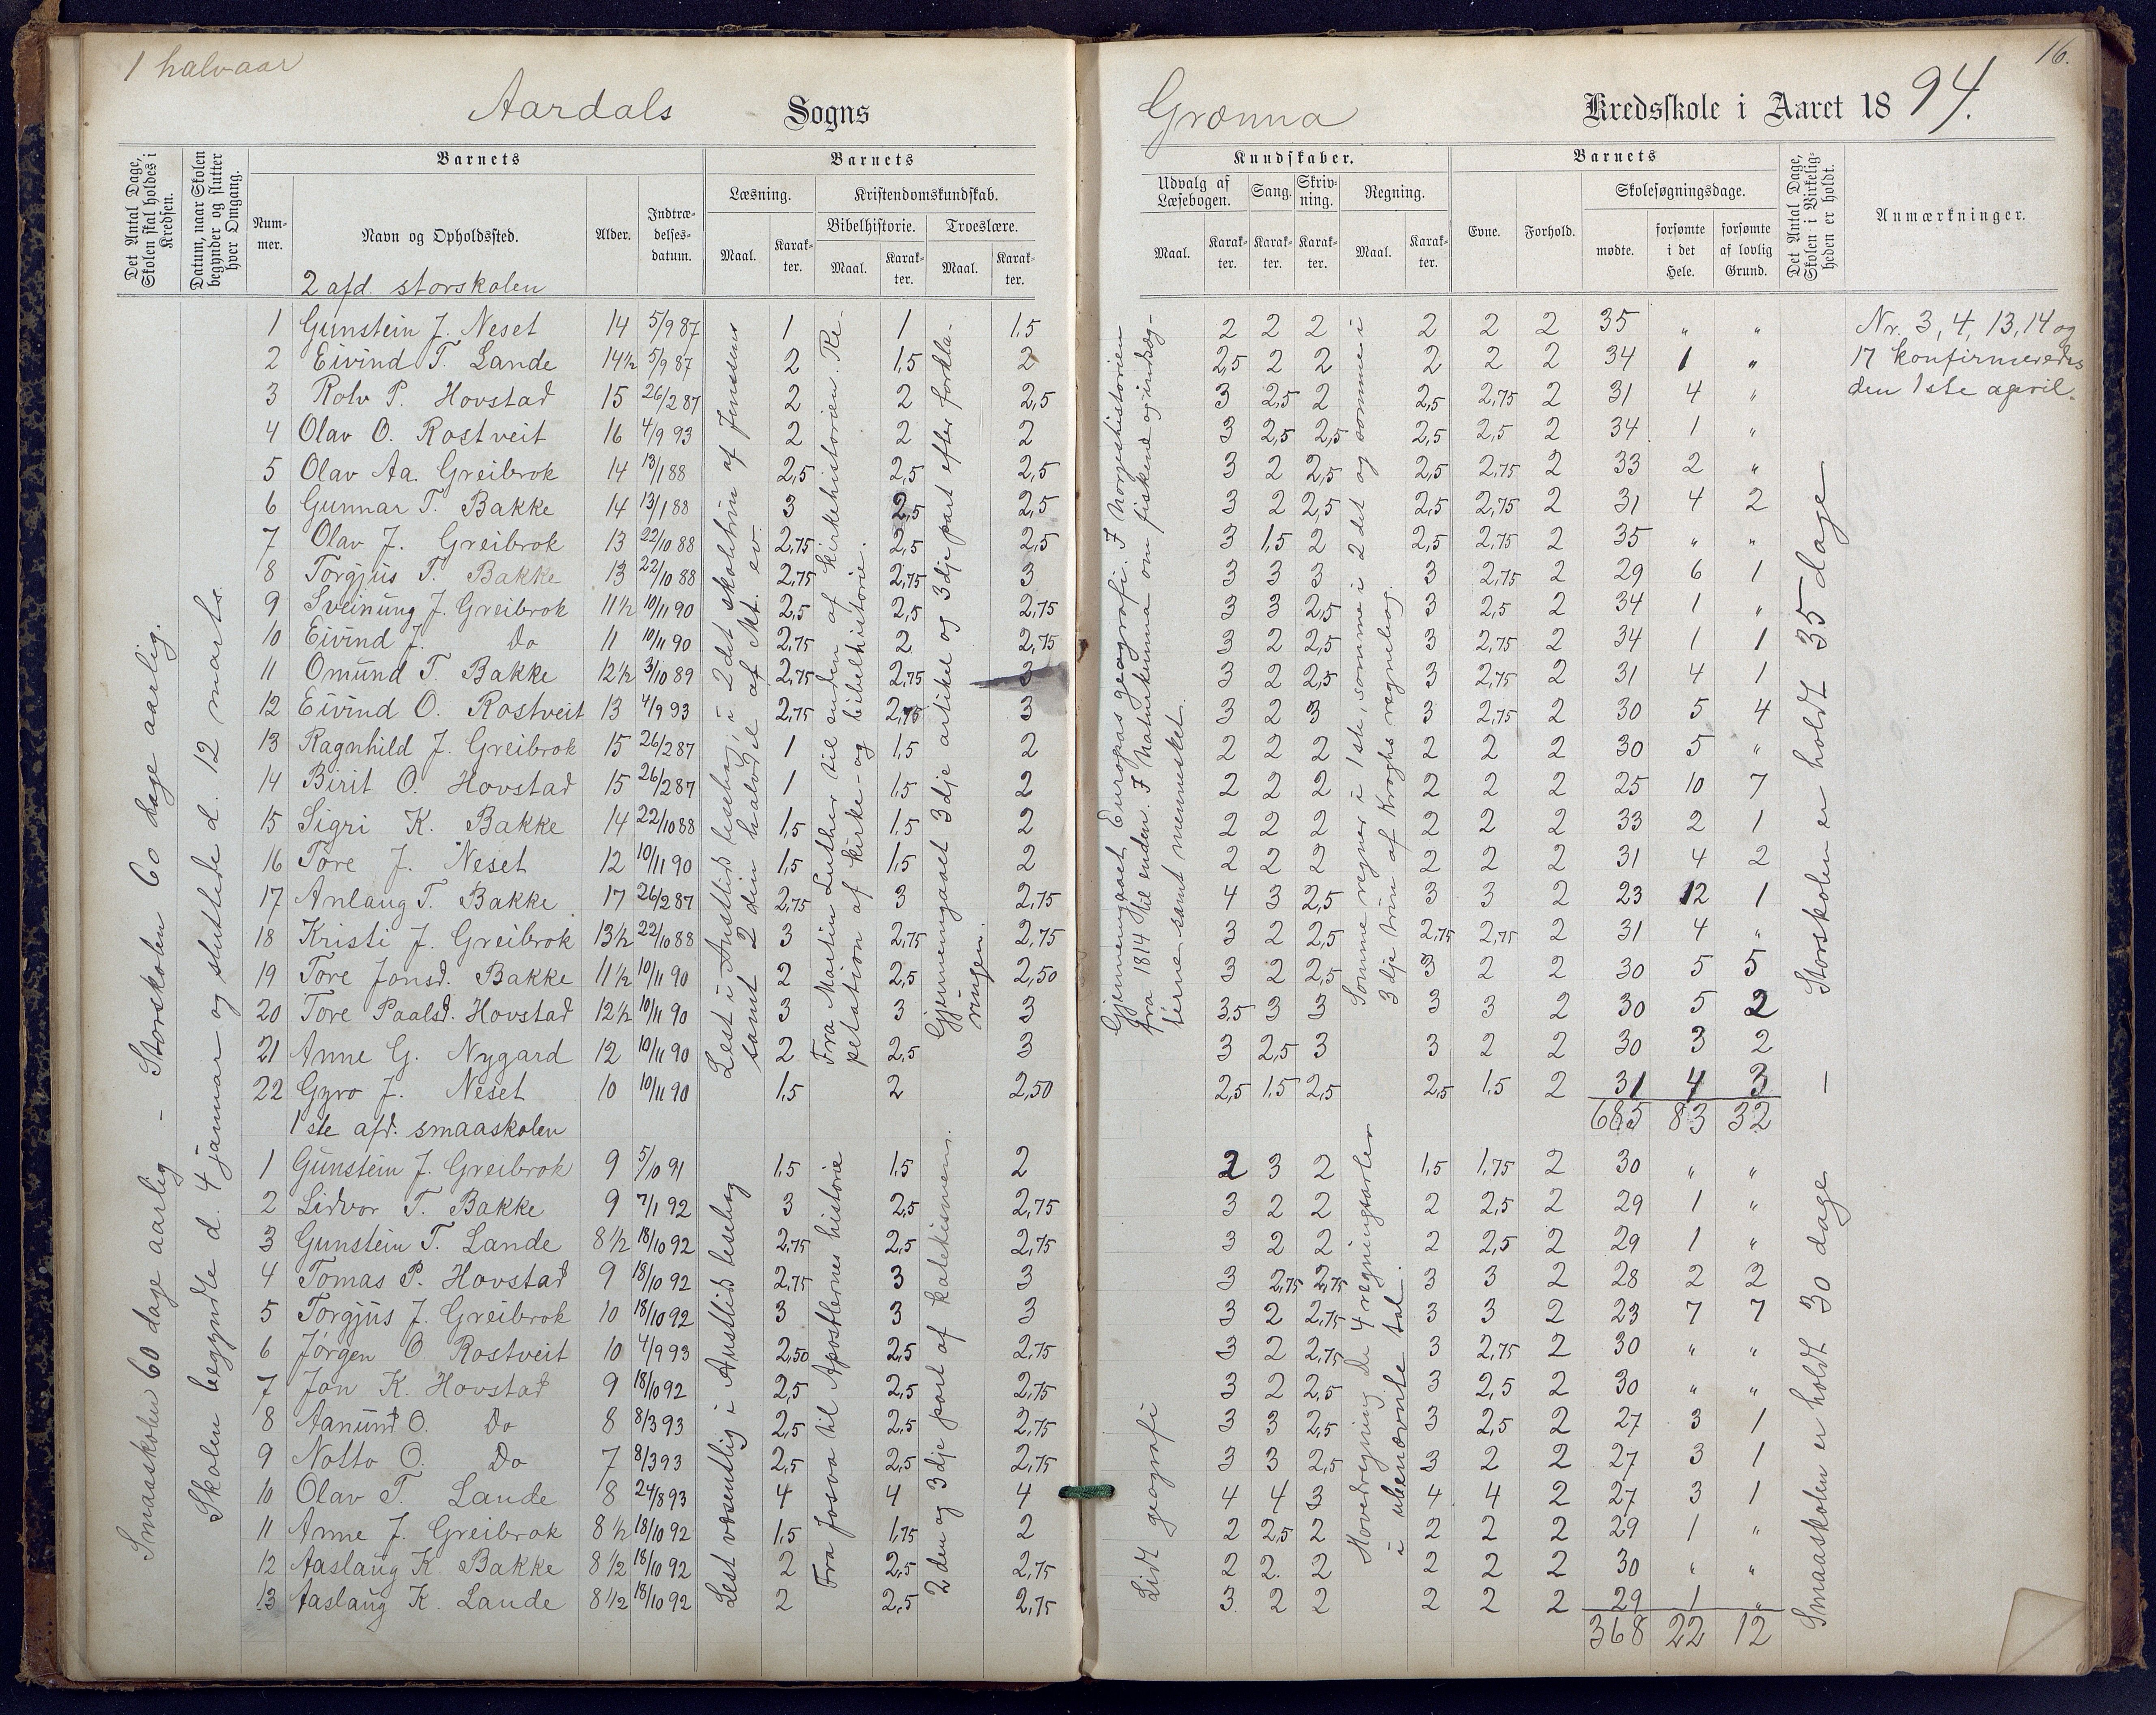 1 halvaar
16.
Aardals Sogns Grønna Kredsskole i Aaret 1894.
Det Antal Dage, Skolen skal holdes i Kredsen.
Datum, naar Skolen begynder og slutter hver Omgang.
Barnets
Nummer.
Navn og Opholdssted.
Alder.
Indtrædelsesdatum.
Barnets
Læsning.
Kristendomskundskab.
Bibelhistorie. Troeslære.
Maal. Karakter. Maal. Karakter. Maal. Karakter.
Kundskaber.
Udvalg af Læsebogen. Sang. Skrivning. Regning.
Maal. Karakter. Karakter. Karakter. Maal. Karakter.
Barnets
Evne. Forhold. Skolesøgningsdage.
mødte. forsømte i det Hele. forsømte af lovlig Grund.
Det Antal Dage, Skolen i Virkeligheden er holdt.
Anmærkninger.
2 afd. storskolen
1 Gunstein J. Neset 14 5/9 87 1 1 1,5 2 2 2 2 2 2 35 " "
2 Eivind T. Lande 14½ 5/9 87 2 1,5 2 2,5 2 2 2 2 2 34 1 "
3 Rolv P. Hovstad 15 26/2 87 2 2 2,5 3 2,5 2 2,5 2,75 2 31 4 "
4 Olav O. Rostveit 16 4/9 93 2 2 2 3 2,5 2,5 2,5 2,5 2 34 1 "
5 Olav Aa. Greibrok 14 13/1 88 2,5 2,5 2,5 3 2 2,5 2,5 2,75 2 33 2 "
6 Gunnar T. Bakke 14 13/1 88 3 2,5 2,5 3 2 2,5 2,5 2,75 2 31 4 2
7 Olav J. Greibrok 13 22/10 88 2,75 2,5 2,5 3 1,5 2 2,5 2,75 2 35 " "
8 Torgjus T. Bakke 13 22/10 88 2,75 2,75 3 3 3 3 3 2,75 2 29 6 1
9 Sveinung J. Greibrok 11½ 10/11 90 2,5 2,5 2,75 3 3 2,5 3 2,5 2 34 1 "
10 Eivind J. Do 11 10/11 90 2,75 2 2,75 3 2 2,5 3 2,75 2 34 1 1
11 Omund T. Bakke 12½ 3/10 89 2,75 2,75 3 3 2 2,5 3 2,75 2 31 4 1
12 Eivind O. Rostveit 13 4/9 93 2,75 2,75 3 3 2 3 3 2,75 2 30 5 4
13 Ragnhild J. Greibrok 15 26/2 87 1 1,5 2 2 2 2 2 2 2 30 5 "
14 Birit O. Hovstad 15 26/2 87 1 1,5 2 2 2 2 2 2 2 25 10 7
15 Sigri K. Bakke 14 22/10 88 1,5 1,5 2 2 2 2 2 2 2 33 2 1
16 Tore J. Neset 12 10/11 90 1,5 1,5 2 2 2 2 2 2 2 31 4 2
17 Anlaug T. Bakke 17 26/2 87 2,75 3 2,75 4 3 2,5 3 3 2 23 12 1
18 Kristi J. Greibrok 13½ 22/10 88 3 2,75 2,75 3 2 2,5 2,75 2,75 2 31 4 "
19 Tore Jonsd. Bakke 11½ 10/11 90 2 2,5 2,50 3 2 2,5 3 2 2 30 5 5
20 Tore Paalsd. Hovstad 12½ 10/11 90 3 3 3 3,5 3 3 3 3 2 30 5 2
21 Anne G. Nygard 12 10/11 90 2 2,5 3 3 2,5 3 3 2 2 30 3 2
22 Gyro J. Neset 10 10/11 90 1,5 2 2,50 2,5 1,5 2,5 2,5 1,5 2 31 4 3
685 83 32
1ste afd. smaaskolen
1 Gunstein J. Greibrok 9 5/10 91 1,5 1,5 2 2 3 2 1,5 1,75 2 30 " "
2 Lidvor T. Bakke 9 7/1 92 3 2,5 2,75 3 2 2 2 2,5 2 29 1 "
3 Gunstein T. Lande 8½ 18/10 92 2,75 2,5 2,75 3 2 2 2 2,5 2 29 1 "
4 Tomas P. Hovstad 9 18/10 92 2,75 3 3 3 2,75 2,75 3 3 2 28 2 2
5 Torgjus J. Greibrok 10 18/10 92 3 3 3 3 2 2,75 3 3 2 23 7 7
6 Jørgen O. Rostveit 10 4/9 93 2,50 2,5 2,75 3 2 2,75 3 2,75 2 30 " "
7 Jon K. Hovstad 9 18/10 92 2,5 2,5 2,75 3 2 2,5 3 2,5 2 30 " "
8 Aanund O. Do 8 8/3 93 2,5 2,5 2,75 3 3 2,5 3 2,5 2 27 3 1
9 Notto O. Do 7 8/3 93 2,5 2,5 2,75 3 3 2,5 3 2 2 27 3 1
10 Olav T. Lande 8 24/8 93 4 4 4 4 4 3 4 4 2 27 3 1
11 Anne J. Greibrok 8½ 18/10 92 1,5 1,75 2 2 2,5 2 2 2 2 29 1 "
12 Aaslaug K. Bakke 8½ 18/10 92 2 2,5 2,75 2 2. 2 2 2 2 30 " "
13 Aaslaug K. Lande 8½ 18/10 92 2 2,5 2,75 3 2 2 2 2 2 29 1 "
368 22 12
Smaaskolen 60 dage aarlig - Storskolen 60 dage aarlig.
Skolen begyndte d. 4 januar og sluttede d. 12 marts.
Lest i Austlid lesebog, i 2det skoletrin af Jensens
samt 2 din halvdel af Mt. ev.
Fra Martin Luther til enden af kirkehistorien. Re-
petation af kirke- og bibelhistorie.
Gjennemgaaet 3dje artikel og 3dje part efter forkla-
ringen.
Gjennemgaaet Europas geografi. I Norgeshistorien
fra 1814 til enden. I Naturkunna om fiskene og indsog-
terne samt mennesket.
Somme regner i 1ste, somme i 2det og somme i
3dje trin af Kroghs regnebog.
Storskolen er holdt 35 dage
Lest væsentlig i Austlid lesebog
Fra Josva til Apostlernes historie
2den og 3dje part af katekismens.
Lidt geografi
Hovedregning. De 4 regningsarter
i ubenævnte tal.
Smaaskolen er holdt 30 dage —
Nr. 3, 4, 13, 14 og
17 konfirmeredes
den 1ste april.